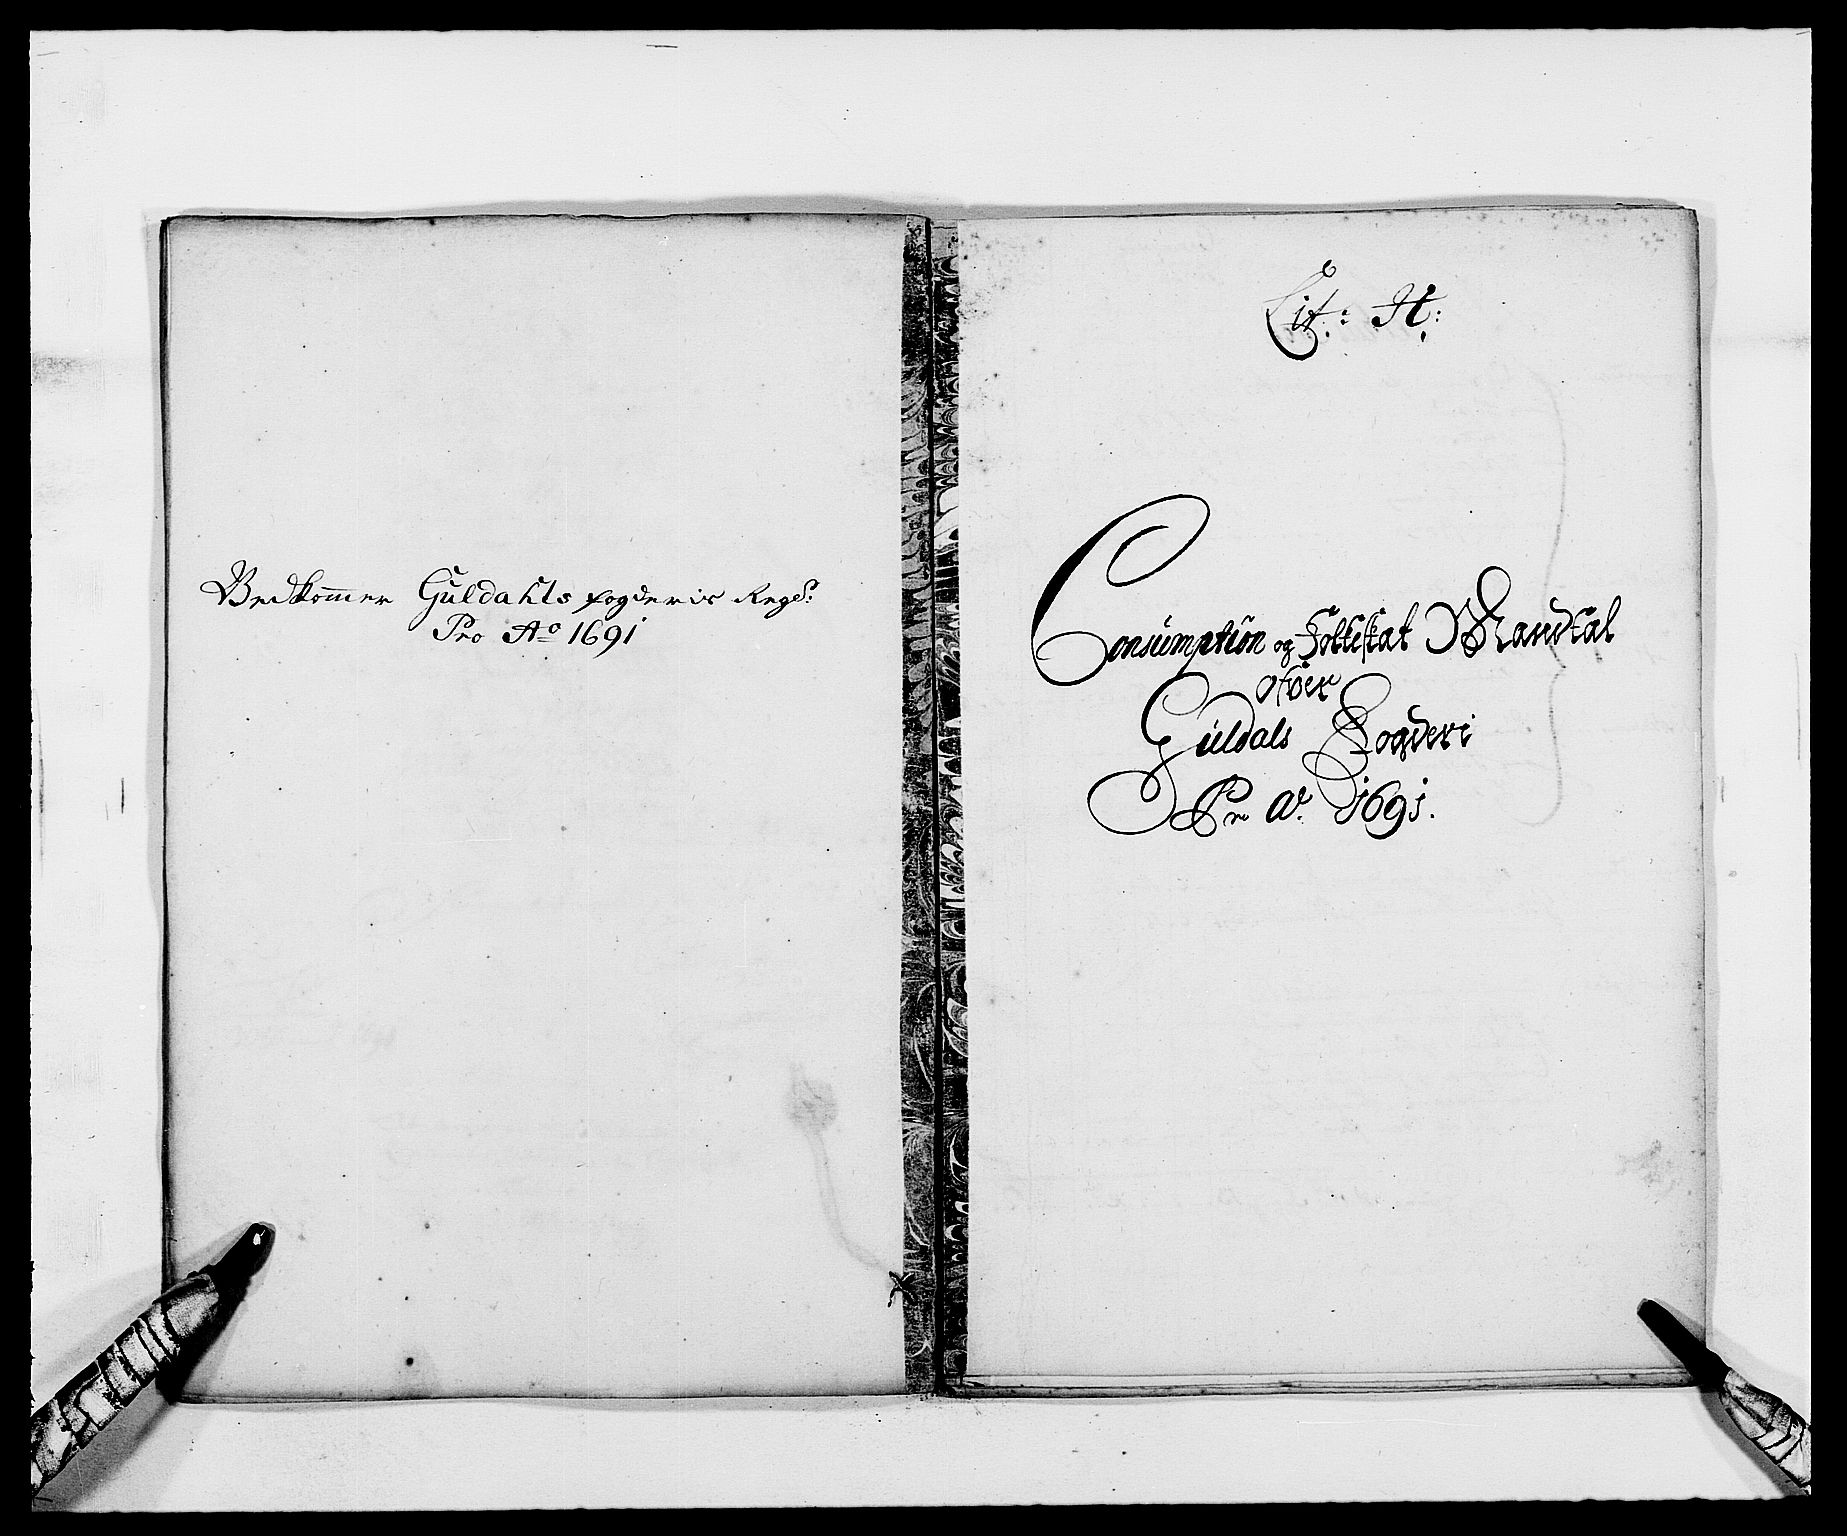 Vedkommer Guldahls fogderis Regs:
Pro Ao 1691
Lit: H:
Consumption og Folkeskat Mandtal
ofver
Guldals Fogderi
Pro Ao. 1691.